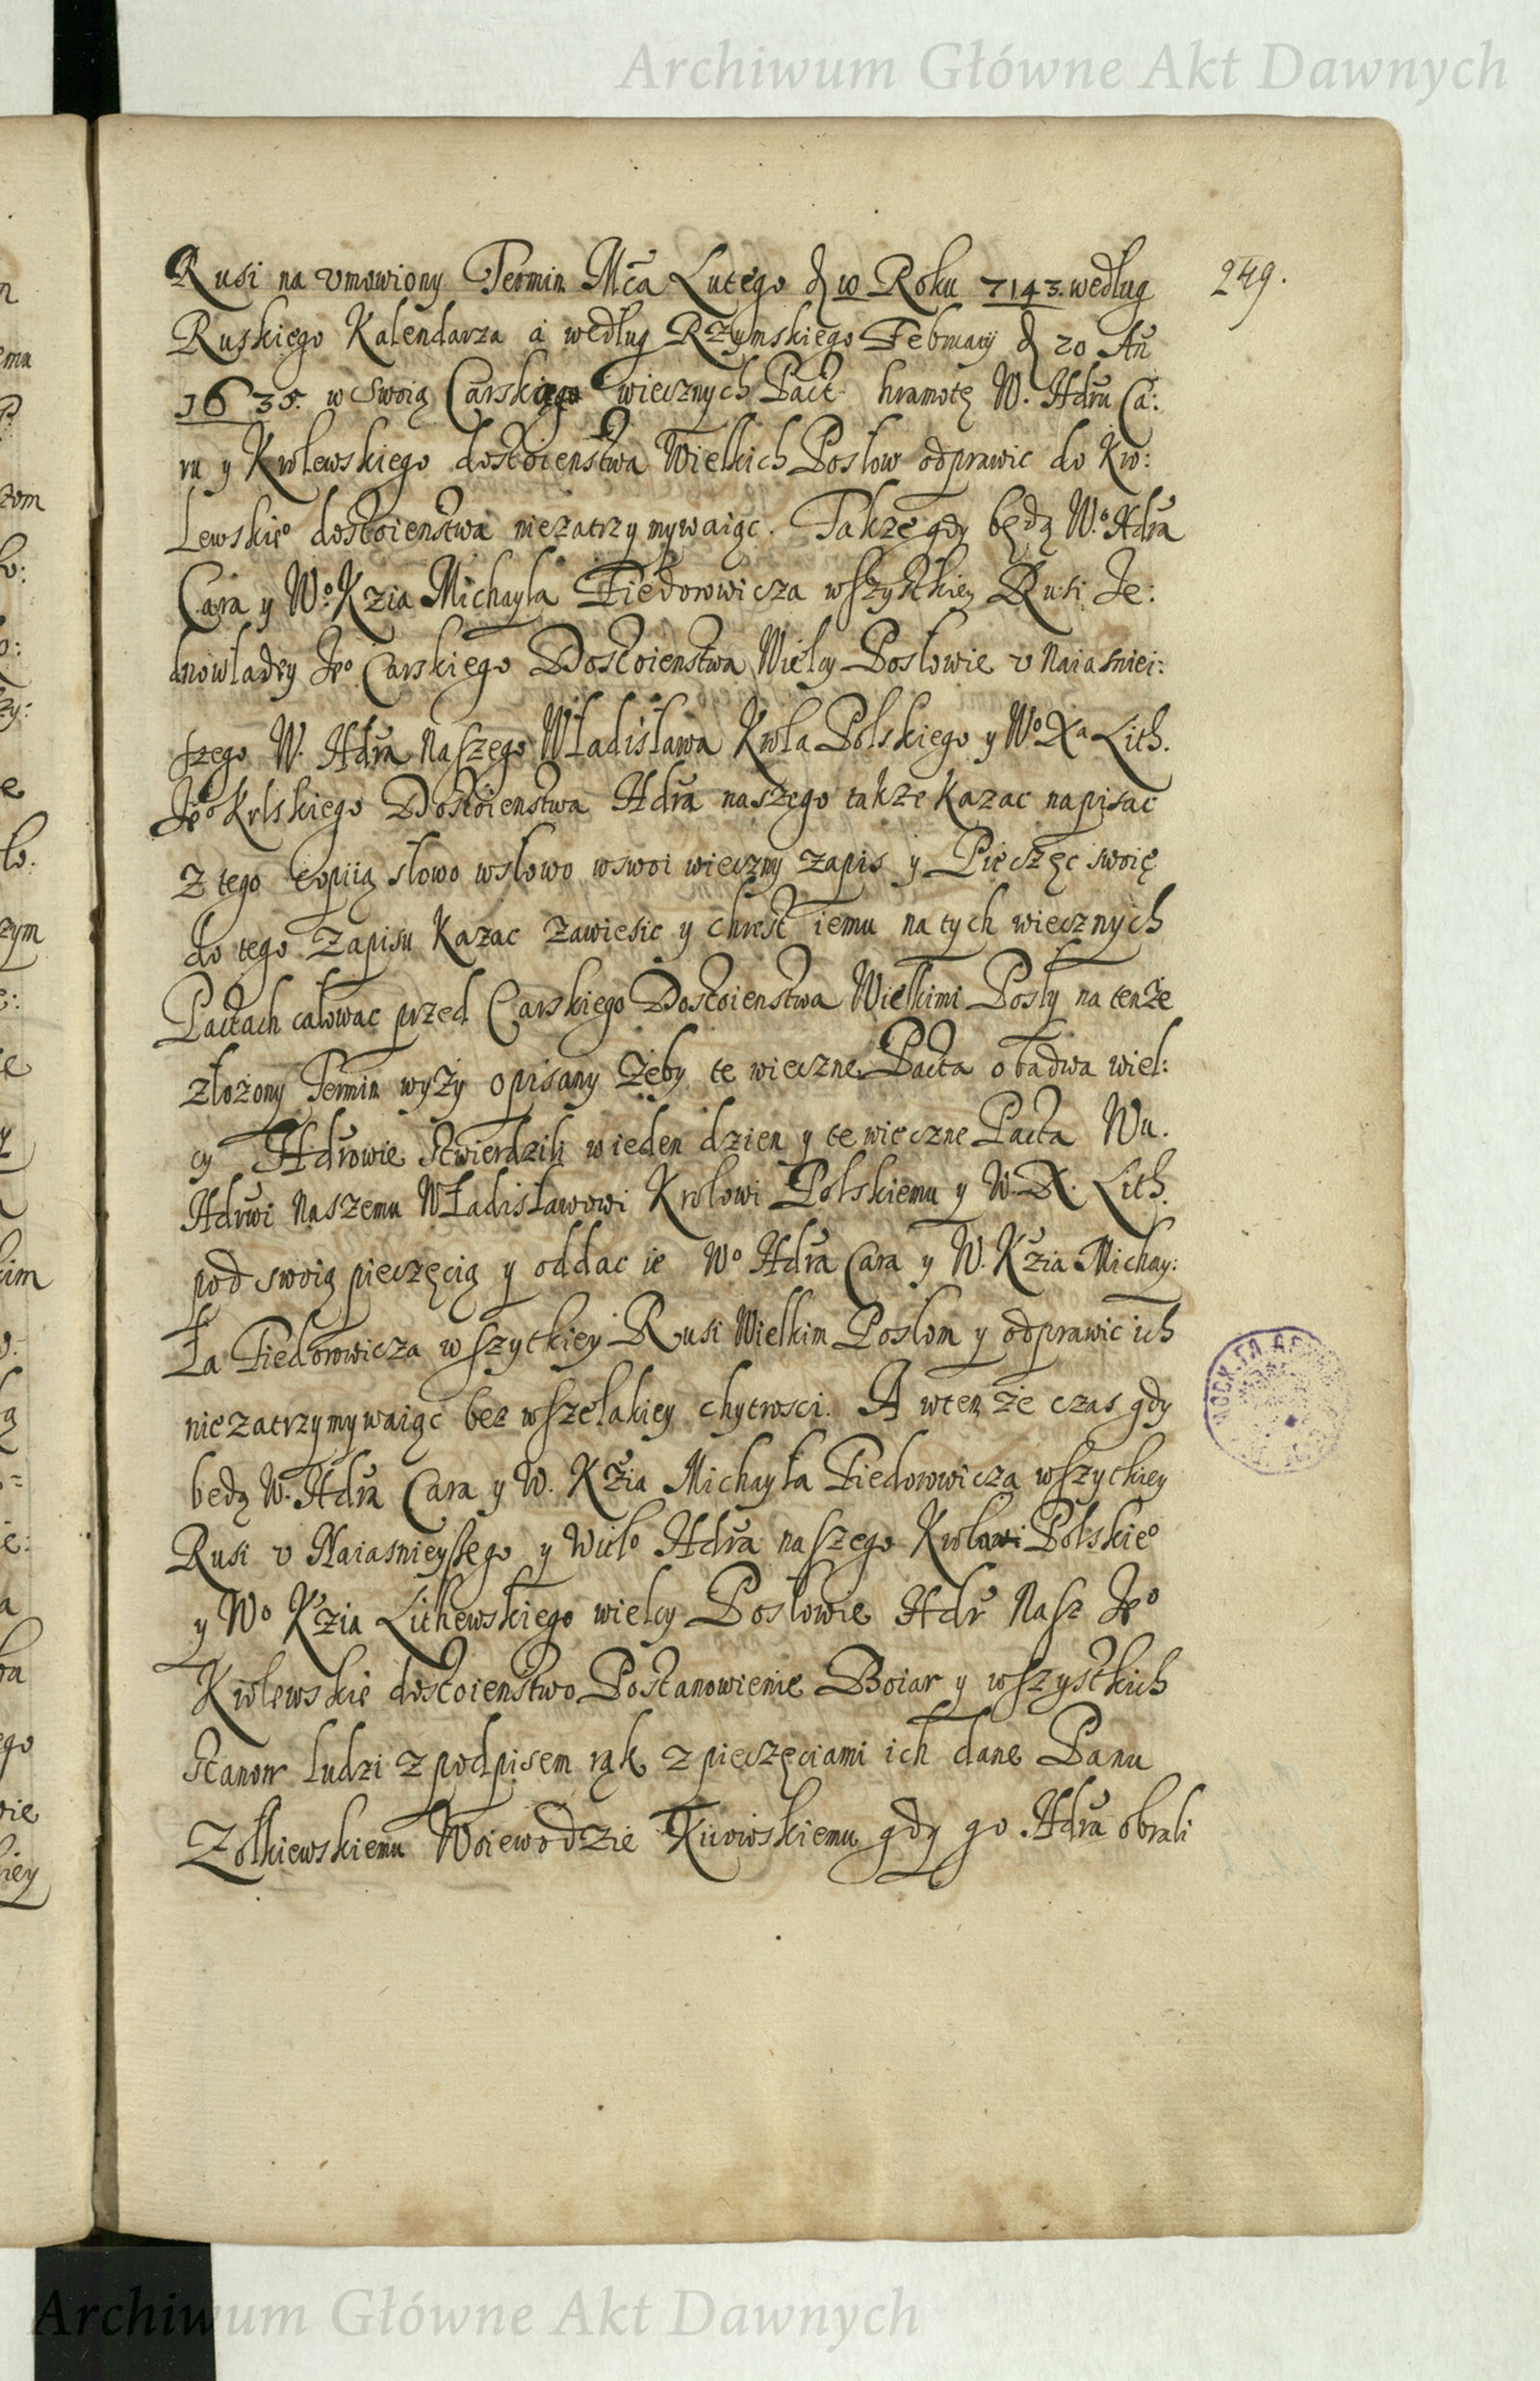 Archiwum Główne Akt Dawnych
249.
Rusi na vmowiony Termin Mca Lutego d 10 Roku 7143. według
Ruskiego Kalendarza a według Rzymskiego February d 20 An
1635. w swoią Carską wiecznych Pact hramotę W. Hdru Ca:
ru y Krolewskiego dostoienstwa Wielkich Posłow odprawic do Kro:
Lewskieo dostoienstwa niezatrzymywaiąc. Także gdy będą Wo. Hdra
Cara y Wo. Kzia Michayla Fiedorowicza wszystkiey Rusi Je:
dnowładzy Jeo Carskiego Dostoienstwa Wielcy Posłowie v Naiasniei:
szego W. Hdra Naszego Władisława Krola Polskiego y Wo Xa Lith.
Jeo Krlskiego Dostoienstwa Hdra naszego także Kazac napisac
z tego Copiią słowo wsłowo wswoi wieczny zapis y Pieczęc swoię
do tego Zapisu Kazac Zawiesic y chrest iemu na tych wiecznych
Pactach całowac przed Carskiego Dostoienstwa Wielkimi Posły na tenże
złożony Termin wyży opisany żeby te wieczne Pacta obadwa wiel:
cy Hdrowie stwierdzili wieden dzien y te wieczne Pacta Wu.
Hdrwi Naszemu Władisławowi Krolowi Polskiemu y W. X. Lith.
pod swoią pieczęcią y oddac ie Wo Hdra Cara y W. Kzia Michay:
ła Fiedorowicza wszytkiey Rusi Wielkim Posłom y odprawic ich
niezatrzymywaiąc bez wszelakiey chytrosci. A wtenże czas gdy
będą W. Hdra Cara y W. Kzia Michayła Fiedorowicza wszytkiey
Rusi v Naiasnieyszego y Wielo Hdra naszego Krola Polskieo
y Wo Kzia Lithewskiego wielcy Posłowie Hdr Nasz Jeo
Krolewskie dostoienstwo Postanowienie Boiar y wszystkich
Stanow ludzi z podpisem rąk z pieczęciami ich dane Panu
Zołkiewskiemu Woiewodzie Kiiowskiemu gdy go Hdra obrali
Archiwum Główne Akt Dawnych